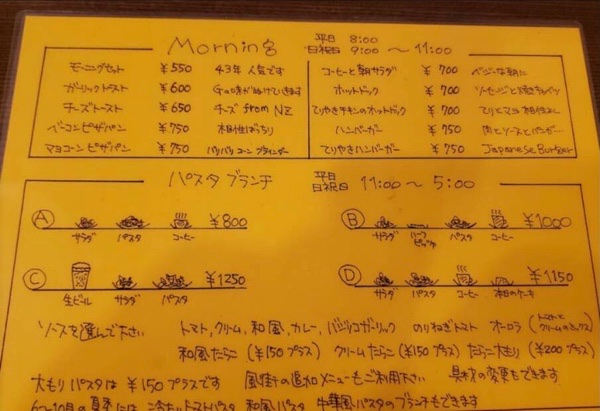 Morning 平日 8:00
日祝日 9:00 〜 11:00
モーニングセット ¥550 43年 人気です
ガーリックトースト ¥600
チーズトースト ¥650 チーズ from NZ
ベーコンピザパン ¥750 相性ばっちり
マヨコーンピザパン ¥750
コーヒーと朝サラダ ¥700 ベジーな朝に
ホットドック ¥700
てりやきチキンのホットドック ¥700
ハンバーガー ¥750
てりやきハンバーガー ¥750 Japanese Burger
パスタブランチ 平日
日祝日 11:00 〜 5:00
A ¥800
サラダ パスタ コーヒー
B ¥1000
サラダ ハーフピザ パスタ コーヒー
C ¥1250
生ビール サラダ パスタ
D ¥1150
サラダ パスタ コーヒー 本日のケーキ
ソースを選んで下さい トマト, クリーム, 和風, カレー, バジリコガーリック のりねぎトマト オーロラ (トマトとクリームのミックス)
和風たらこ (¥150プラス) クリームたらこ (¥150プラス) たらこ大もり (¥200プラス)
大もりパスタは ¥150プラスです 風街の追加メニューもご利用下さい 具材の変更もできます
6〜10月の夏季には 冷たいトマトパスタ 和風パスタ パスタのブランチもできます